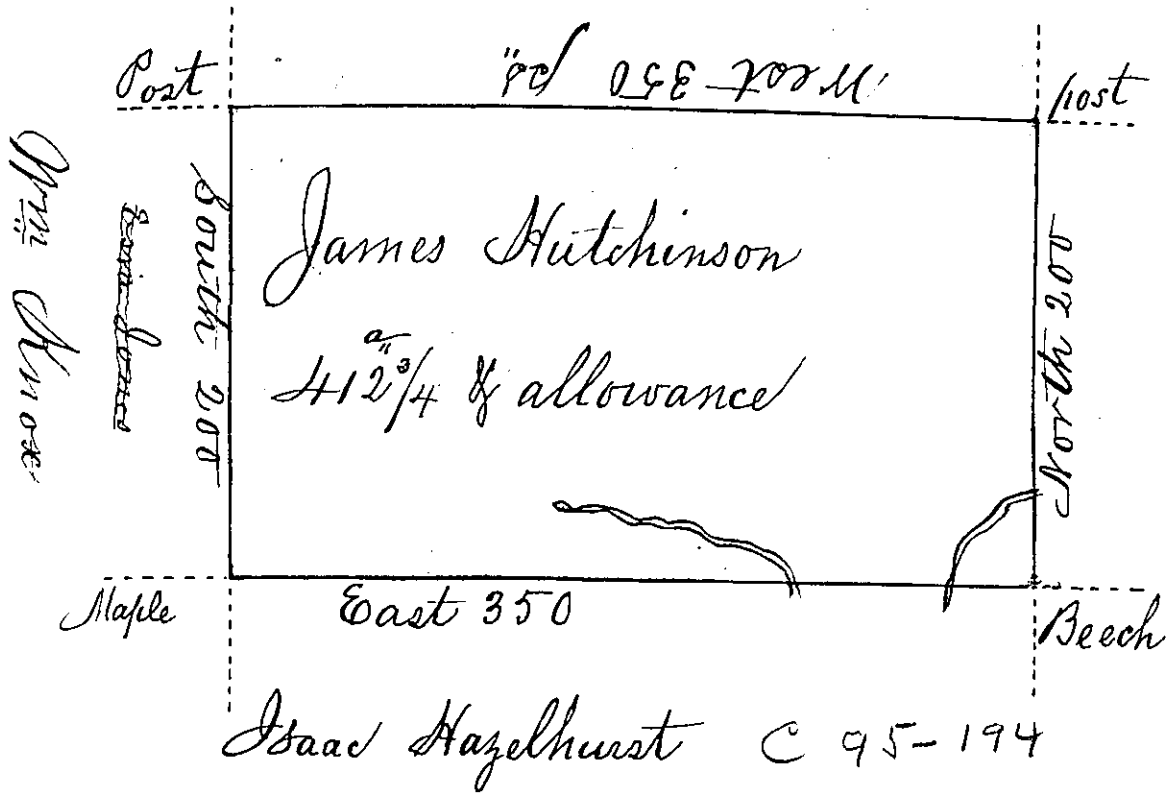 Post
West 350 ps
post
Wm Knox
South 200
James Hutchinson
412 3/4 a & allowance
North 200
Maple
East 350
Beech
Isaac Hazelhurst C 95-194